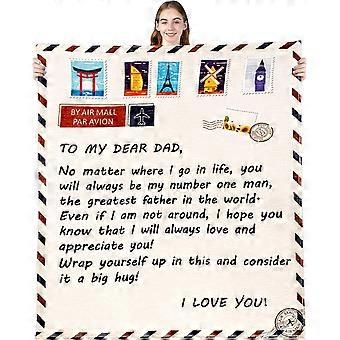 BY AIR MALL
PAR AVION
TO MY DEAR DAD,
No matter where I go in life, you
will always be my number one man,
the greatest father in the world.
Even if I am not around, I hope you
know that I will always love and
appreciate you!
Wrap yourself up in this and consider
it a big hug!
I LOVE YOU!